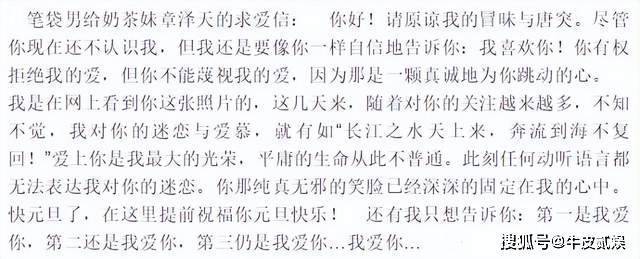 笔袋男给奶茶妹章泽天的求爱信： 你好！请原谅我的冒昧与唐突。尽管
你现在还不认识我，但我还是要像你一样自信地告诉你：我喜欢你！你有权
拒绝我的爱，但你不能蔑视我的爱，因为那是一颗真诚地为你跳动的心。
我是在网上看到你这张照片的，这几天来，随着对你的关注越来越多，不知
不觉，我对你的迷恋与爱慕，就有如“长江之水天上来，奔流到海不复
回！”爱上你是我最大的光荣，平庸的生命从此不普通。此刻任何动听语言都
无法表达我对你的迷恋。你那纯真无邪的笑脸已经深深的固定在我的心中。
快元旦了，在这里提前祝福你元旦快乐！ 还有我只想告诉你：第一是我爱
你，第二还是我爱你，第三仍是我爱你…我爱你…
搜狐号@牛皮贰娱